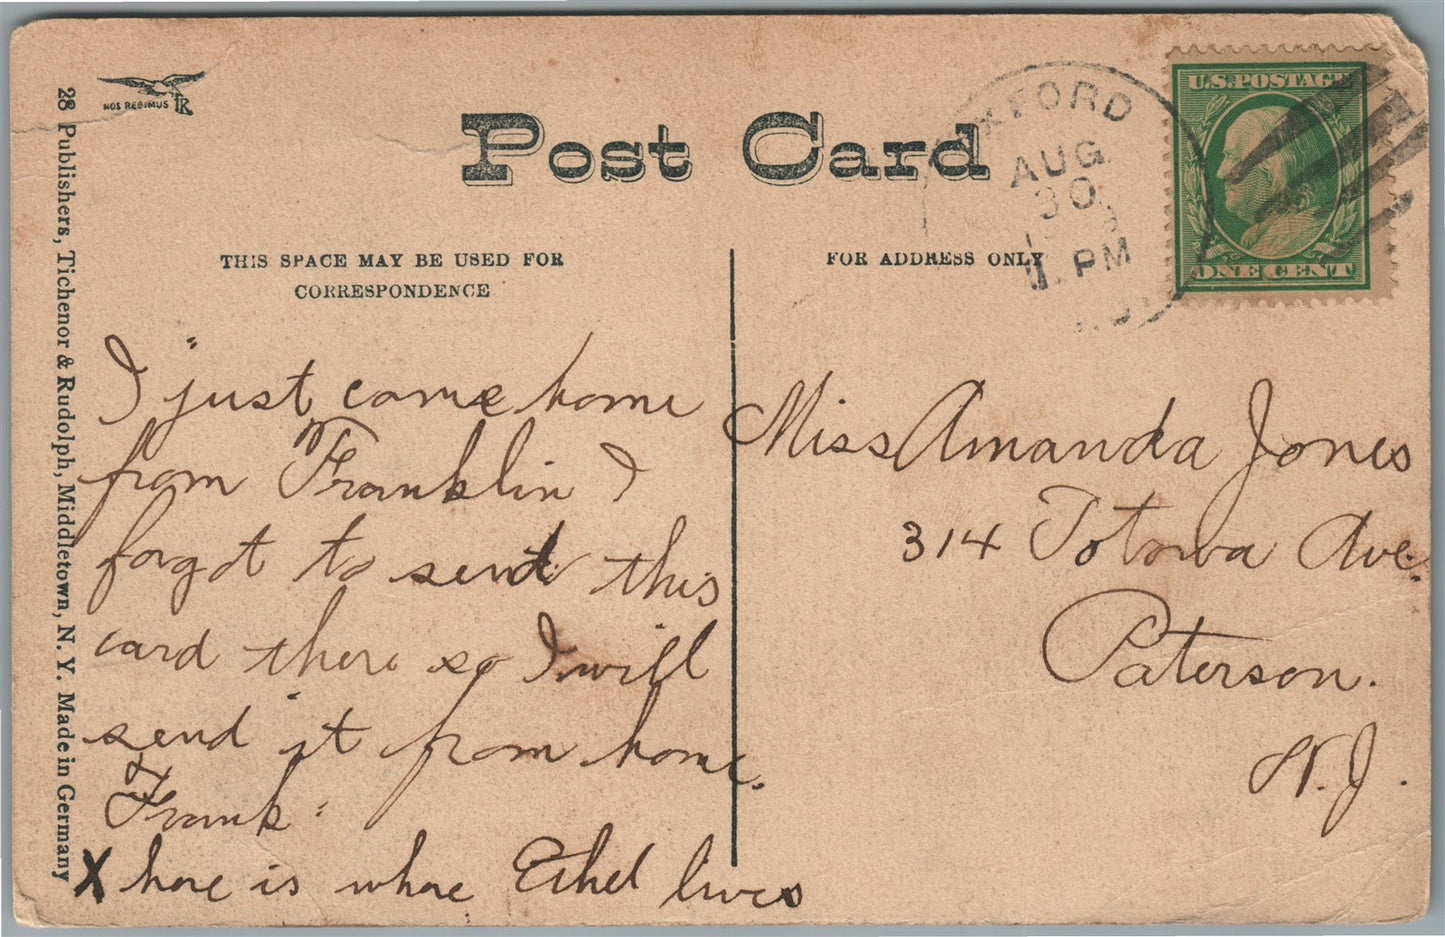 NOS REGIMUS TR
28 Publishers, Tichenor & Rudolph, Middletown, N. Y. Made in Germany
Post Card
THIS SPACE MAY BE USED FOR
CORRESPONDENCE
FOR ADDRESS ONLY
OXFORD
AUG
30
PM
U.S. POSTAGE
ONE CENT
I just came home
from Franklin I
forgot to send this
card there so I will
send it from home.
Frank
X here is where Ethel lives
Miss Amanda Jones
314 Totowa Ave.
Paterson.
N.J.